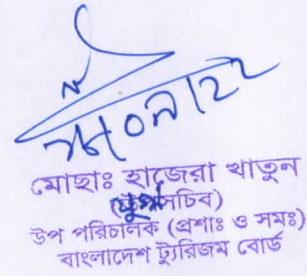 মোছাঃ হাজেরা খাতুন
(যুগ্মসচিব)
উপ পরিচালক (প্রশাঃ ও সমঃ)
বাংলাদেশ ট্যুরিজম বোর্ড